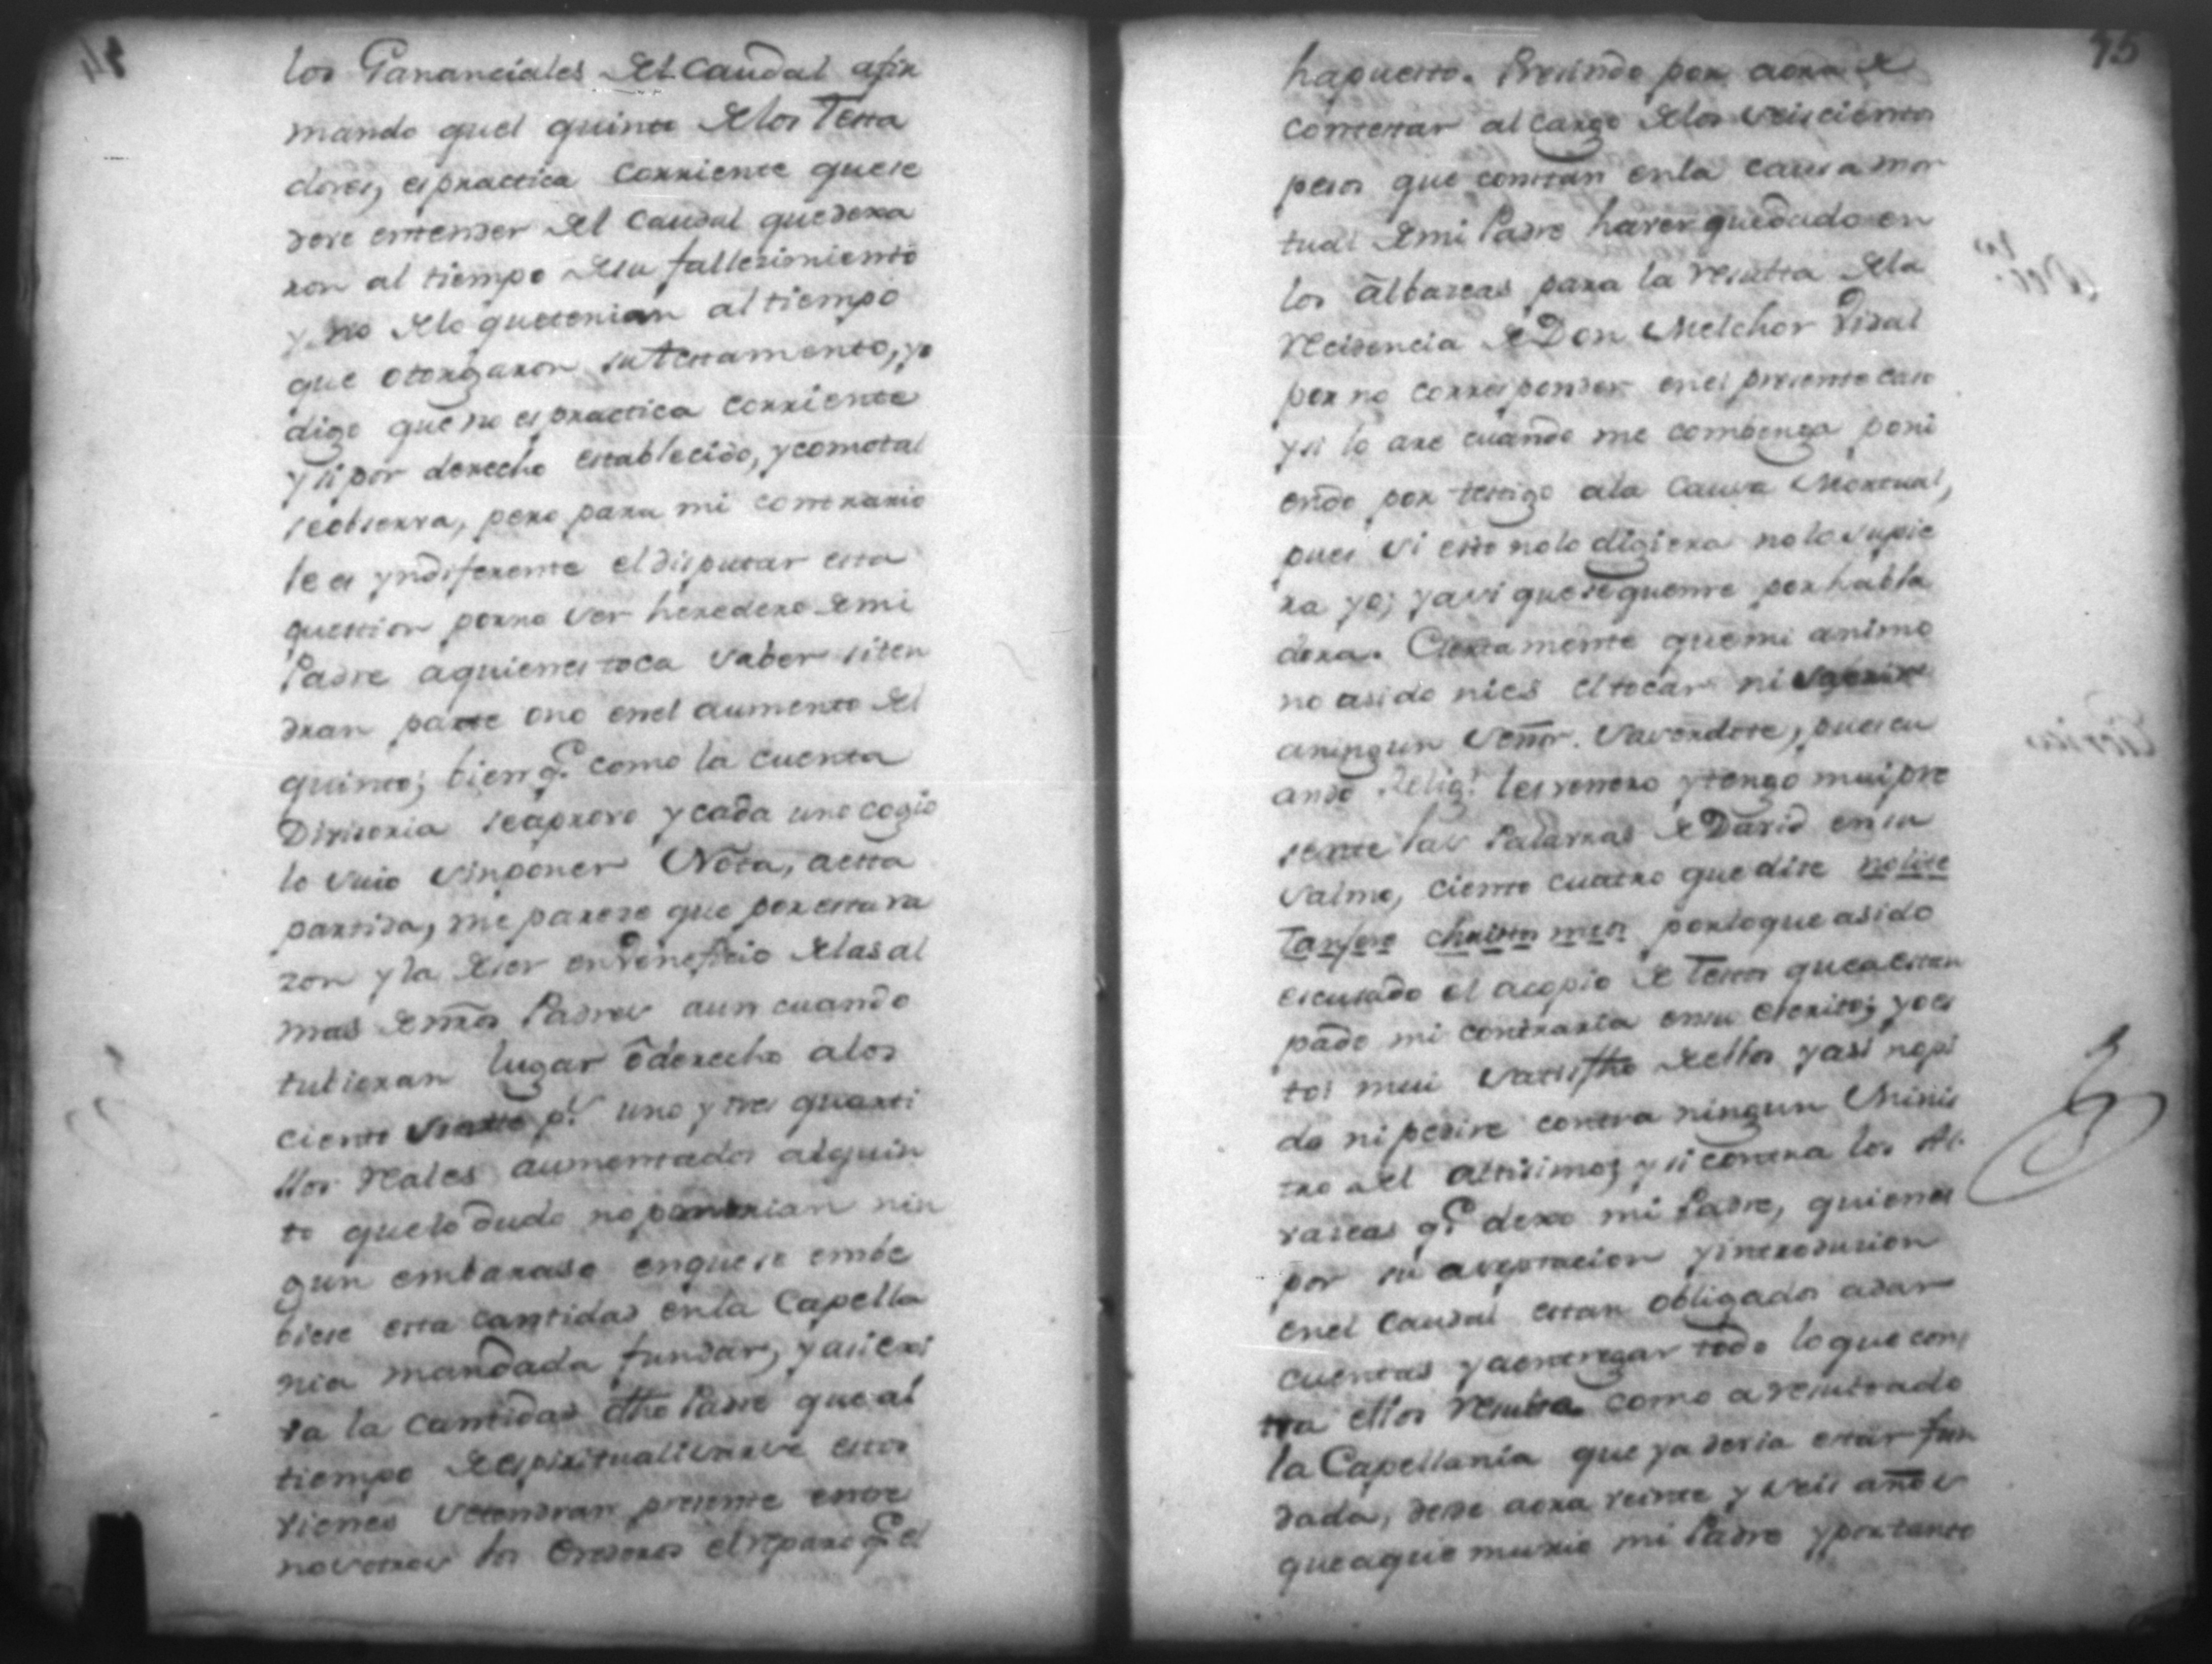 los Gananciales del Caudal afir
mando quel quinto de los Testa
dores, es practica corriente que se
deve entender del Caudal que dexa
ron al tiempo de su fallesimiento
y no de lo que tenian al tiempo
que otorgaron su testamento, yo
digo que no es practica corriente
y si por derecho establecido, y como tal
se observa, pero para mi contrario
le es yndiferente el disputar esta
question por no ser heredero de mi
Padre a quienes toca saber si ten
dran parte o no en el aumento del
quinto; bien q.e como la cuenta
Divisoria se aprovo y cada uno cogio
lo suio sin poner Nota, a esta
partida, me parese que por esta ra
zon y la de ser en veneficio de las al
mas de nros Padres aun cuando
tubieran lugar o derecho a los
ciento p.s uno y tres quarti
llos reales aumentados al quin
to que lo dudo no pondrian nin
gun embaraso en que se embe
biese esta cantidad en la Capella
nia mandada fundar, y asi exi
va la cantidad dho Padre que al
tiempo de espiritualisarse estos
vienes se tendran presente entre
nosotros los Erederos el reparo q.e el
95
ha puesto. Presindo por aora de
contestar al cargo de los seiscientos
pesos que constan en la causa mor
tual de mi Padre haver quedado en
los albaseas para la resulta de la
recidencia de Don Melchor Vidal
por no corresponder en el presente caso
y si lo are cuando me combenga poni
endo por testigo a la Causa Mortual,
pues si esto no lo digiera no lo supie
ra yo; y a si que se quente por habla
dora. Ciertamente que mi animo
no a sido ni es el tocar ni
a ningun señor. Saserdote, pues cu
ando Relig.s les venero y tengo mui pre
sente las Palabras de David en su
salmo, ciento cuatro que dise nolite
tangere christos meos por lo que a sido
escusado el acopio de Testos que a estam
pado mi contraria en su escrito; y o es
toi mui satisfha de ellos y asi no pi
do ni pedire contra ningun Minis
tro del altisimo; y si contra los Al
vaseas q.e dexo mi Padre, quienes
por su aceptacion y introdusion
en el Caudal estan obligados a dar
cuentas y a entregar todo lo que con
tra ellos resulta como a resultado
la Capellania que ya devia estar fun
dada, desde aora veinte y seis años
que a que murio mi Padre y por tanto